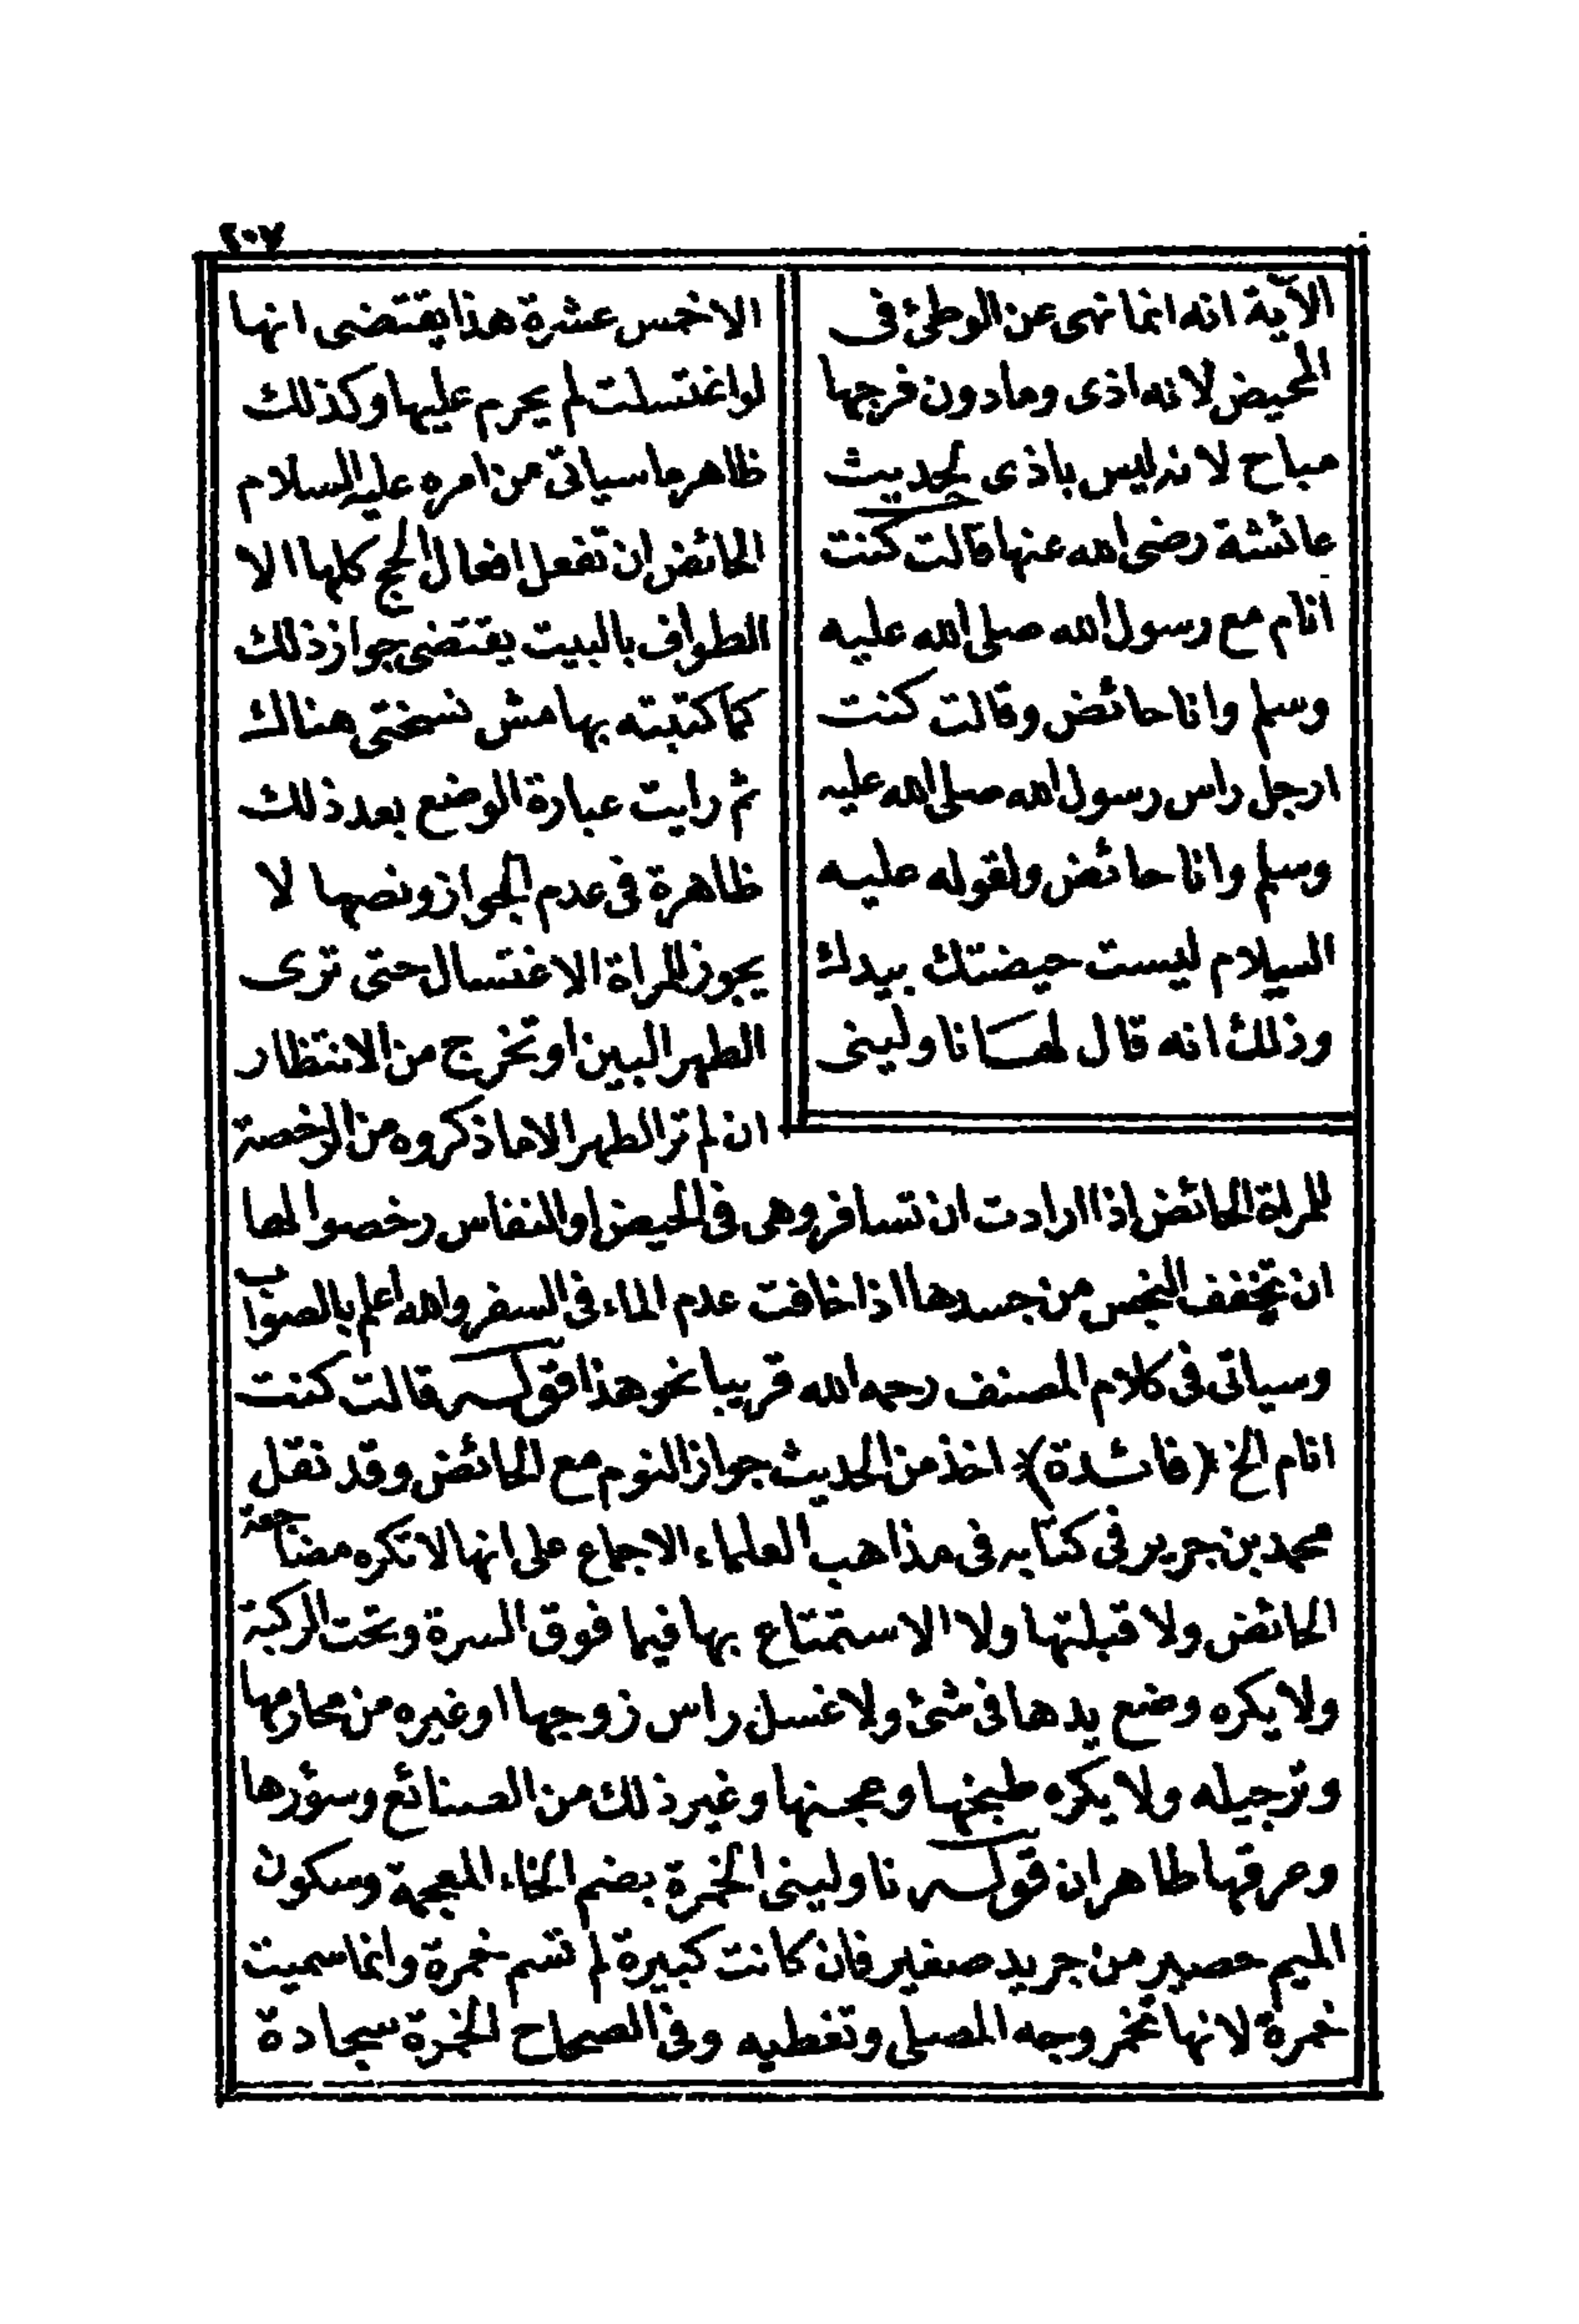 ٢٠٧
الآية انه انما نهى عن الوطئ فى
المحيض لانه اذى ومادون فرجها
مباح لانه ليس باذى لحديث
عائشة رضى الله عنها قالت كنت
انام مع رسول الله صلى الله عليه
وسلم وانا حائض وقالت كنت
ارجل راس رسول الله صلى الله عليه
وسلم وانا حائض ولقوله عليه
السلام ليست حيضتك بيدك
وذلك انه قال لها ناولينى
الا خمس عشرة هذا يقتضى انها
لو اغتسلت لم يحرم عليها وكذلك
ظاهر ما سياتى من امره عليه السلام
الحائض ان تفعل افعال الحج كلها الا
الطواف بالبيت يقتضى جواز ذلك
كما كتبته بهامش نسختى هناك
ثم رايت عبارة الوضع بعد ذلك
ظاهرة فى عدم الجواز ونصها لا
يجوز للمراة الاغتسال حتى ترى
الطهر البين او تخرج من الانتظار
ان لم تر الطهر الا ما ذكروه من الرخصة
للمراة الحائض اذا ارادت ان تسافر وهى فى الحيض او النفاس رخصوا لها
ان تخفف النجس من جسدها اذا خافت عدم الماء فى السفر والله اعلم بالصواب
وسياتى فى كلام المصنف رحمه الله قريبا نحو هذا قوله قالت كنت
انام الخ (فائدة) اخذ من الحديث جواز النوم مع الحائض وقد نقل
محمد بن جرير فى كتابه فى مذاهب العلماء الاجماع على انها لا تكره مضاجعة
الحائض ولا قبلتها ولا الاستمتاع بها فيما فوق السرة وتحت الركبة
ولا يكره وضع يدها فى شئ ولا غسل راس زوجها او غيره من محارمها
وترجيله ولا يكره طبخها وعجنها وغير ذلك من الصنائع وسؤرها
وعرقها طاهران قوله ناولينى الخمرة بضم الخاء المعجمة وسكون
الميم حصير من جريد صغير فان كانت كبيرة لم تسم خمرة وانما سميت
خمرة لانها تخمر وجه المصلى وتغطيه وفى الصحاح الخمرة سجادة